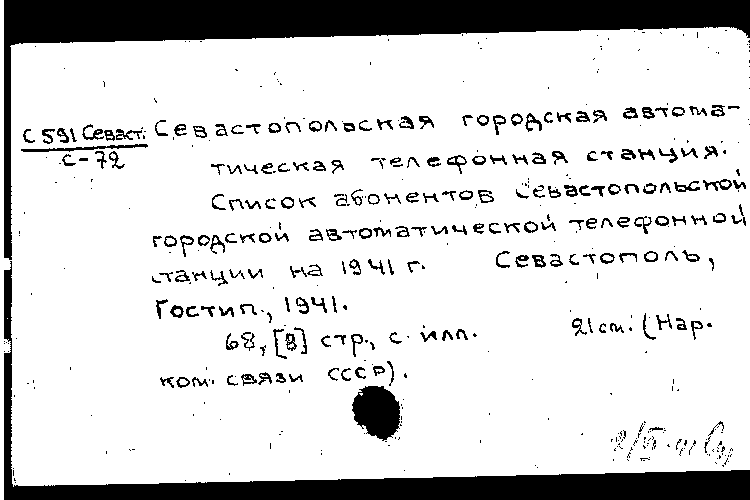 С 591 Севаст. Севастопольская городская автома-
С-72
тическая телефонная станция.
Список абонентов Севастопольской
городской автоматической телефонной
станции на 1941 г. Севастополь,
Гостип., 1941.
68, [8] стр., с илл. 21 см. (Нар.
ком. связи СССР).